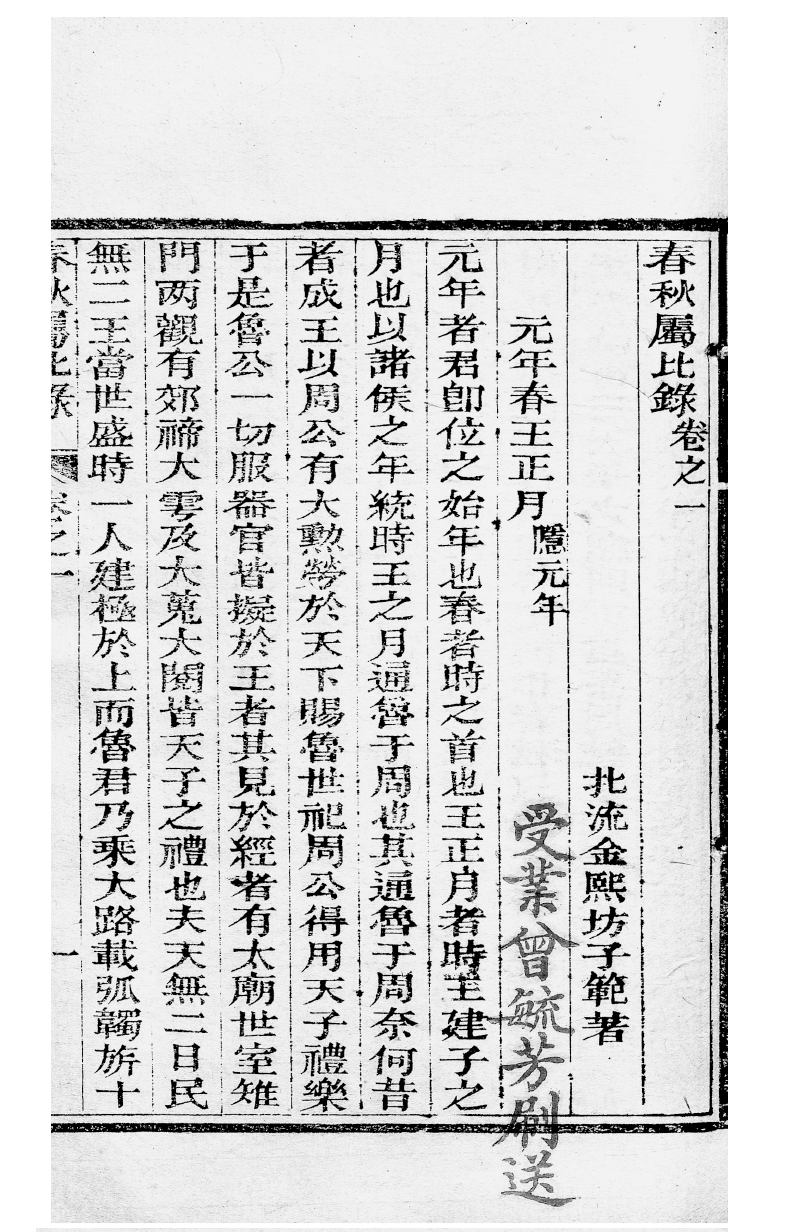 春秋屬比錄卷之一
北流金熙坊子範著
元年春王正月隱元年
受業曾毓芳刷送
元年者君卽位之始年也春者時之首也王正月者時王建子之
月也以諸侯之年統時王之月通魯于周也其通魯于周奈何昔
者成王以周公有大勲勞於天下賜魯世祀周公得用天子禮樂
于是魯公一切服器官皆擬於王者其見於經者有太廟世室雉
門两觀有郊禘大雩及大蒐大閱皆天子之禮也夫天無二日民
無二王當世盛時一人建極於上而魯君乃乘大路載弧韣旂十
春秋屬比錄 卷之一 一